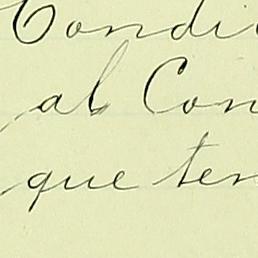 Condi
al Con
que ten